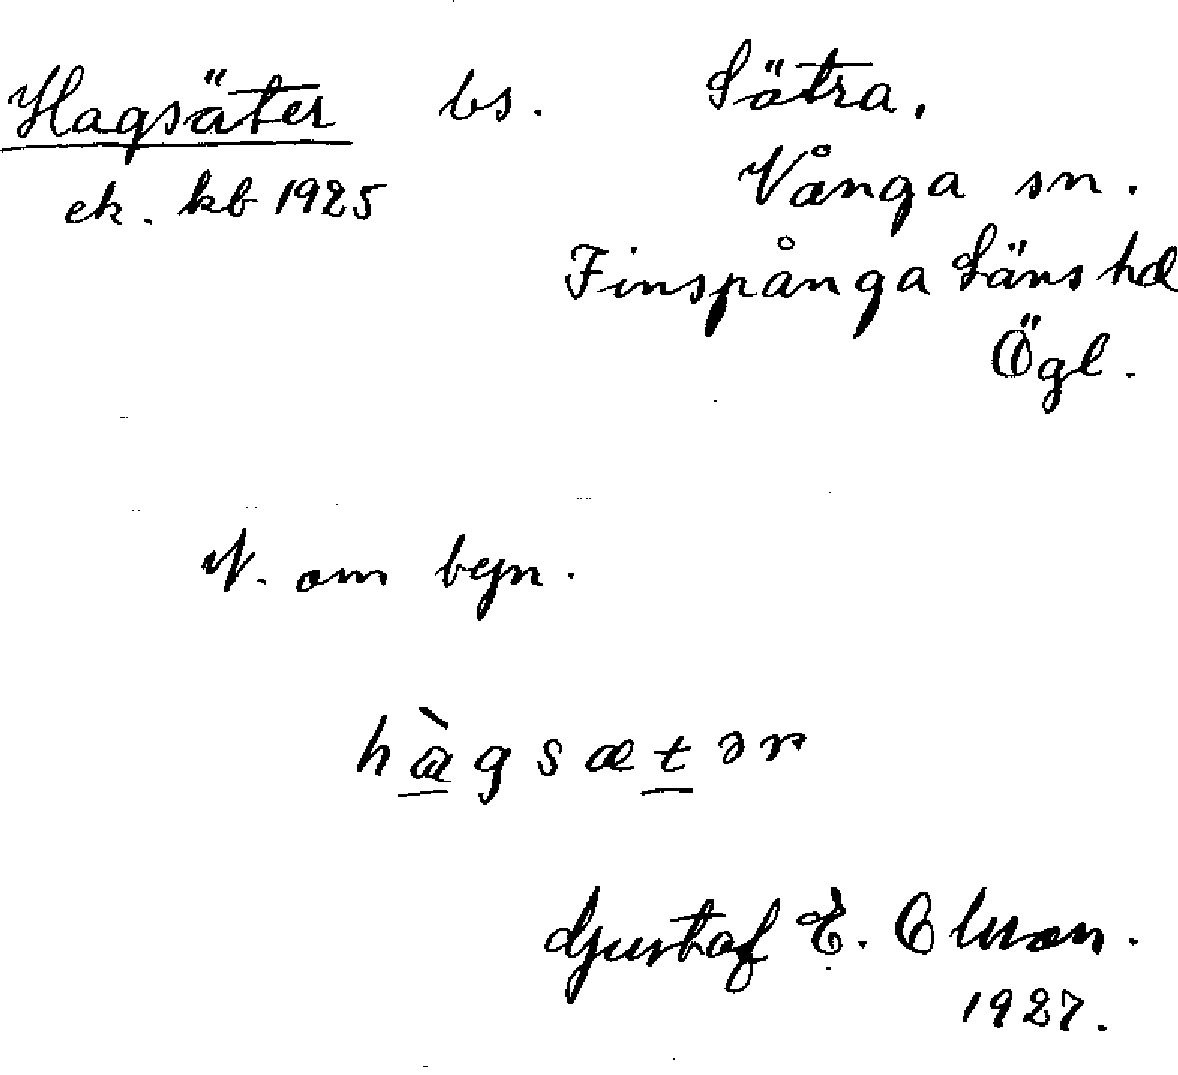 Hagsäter bs. Sätra,
ek. kb 1925 Vånga sn.
Finspånga Läns hd
Ögl.
N. om byn.
hàgsætər
Gustaf E. Olsson.
1927.